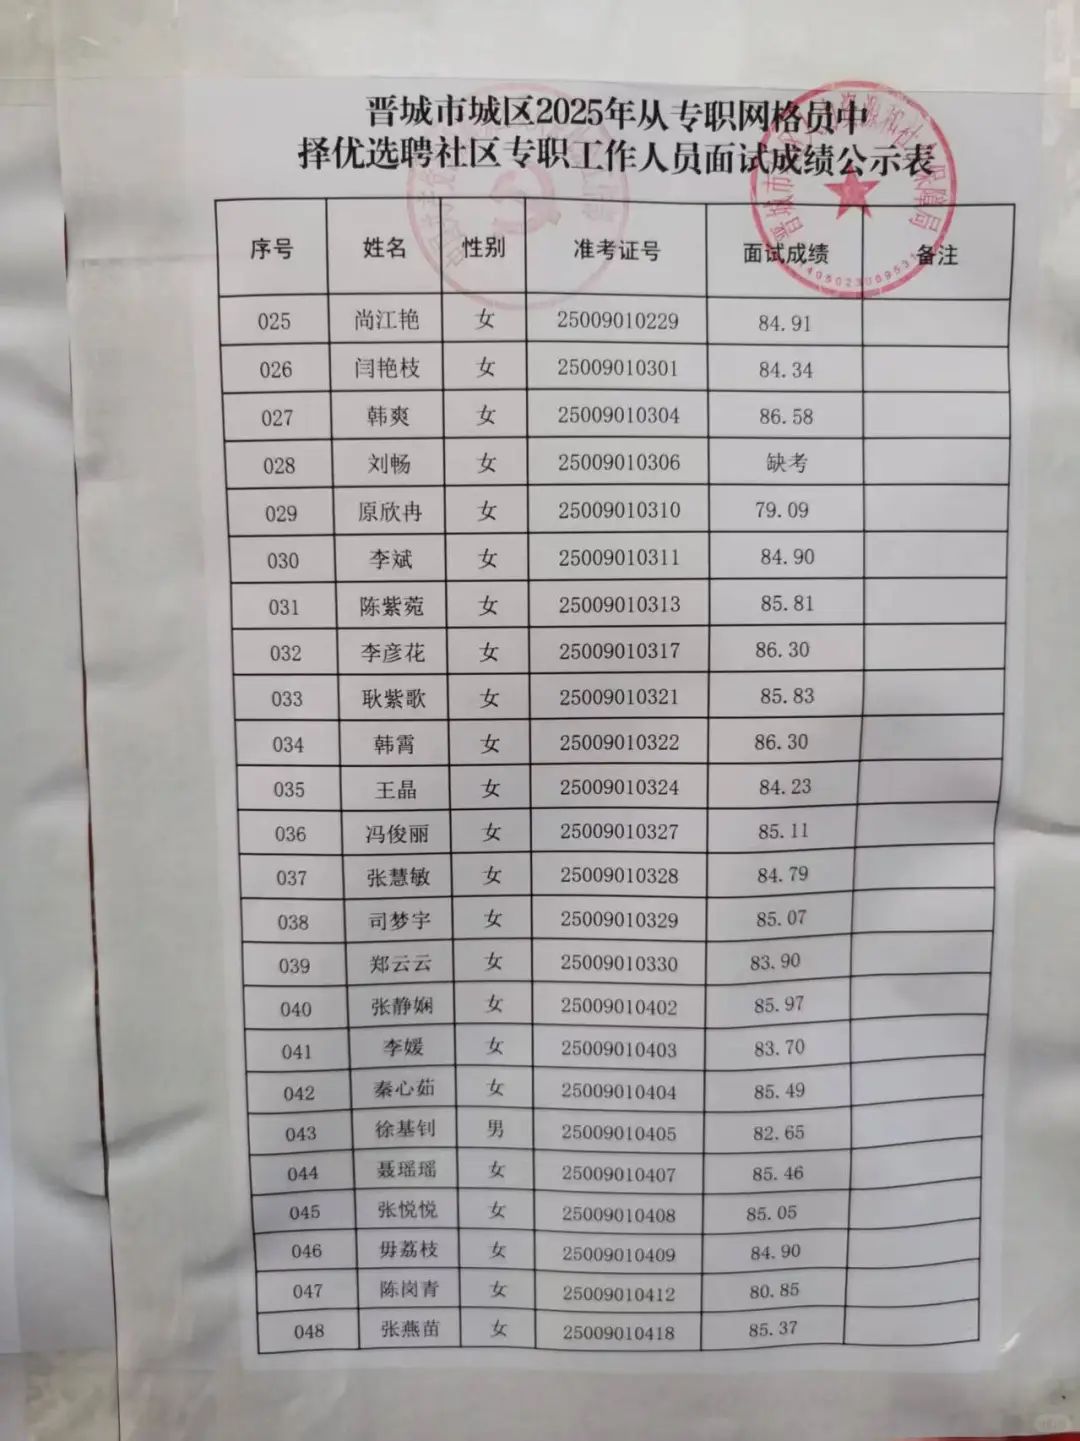 晋城市城区2025年从专职网格员中
择优选聘社区专职工作人员面试成绩公示表
序号 姓名 性别 准考证号 面试成绩 备注
025 尚江艳 女 25009010229 84.91
026 闫艳枝 女 25009010301 84.34
027 韩爽 女 25009010304 86.58
028 刘畅 女 25009010306 缺考
029 原欣冉 女 25009010310 79.09
030 李斌 女 25009010311 84.90
031 陈紫菀 女 25009010313 85.81
032 李彦花 女 25009010317 86.30
033 耿紫歌 女 25009010321 85.83
034 韩霄 女 25009010322 86.30
035 王晶 女 25009010324 84.23
036 冯俊丽 女 25009010327 85.11
037 张慧敏 女 25009010328 84.79
038 司梦宇 女 25009010329 85.07
039 郑云云 女 25009010330 83.90
040 张静娴 女 25009010402 85.97
041 李媛 女 25009010403 83.70
042 秦心茹 女 25009010404 85.49
043 徐基钊 男 25009010405 82.65
044 聂瑶瑶 女 25009010407 85.46
045 张悦悦 女 25009010408 85.05
046 毋荔枝 女 25009010409 84.90
047 陈岗青 女 25009010412 80.85
048 张燕苗 女 25009010418 85.37